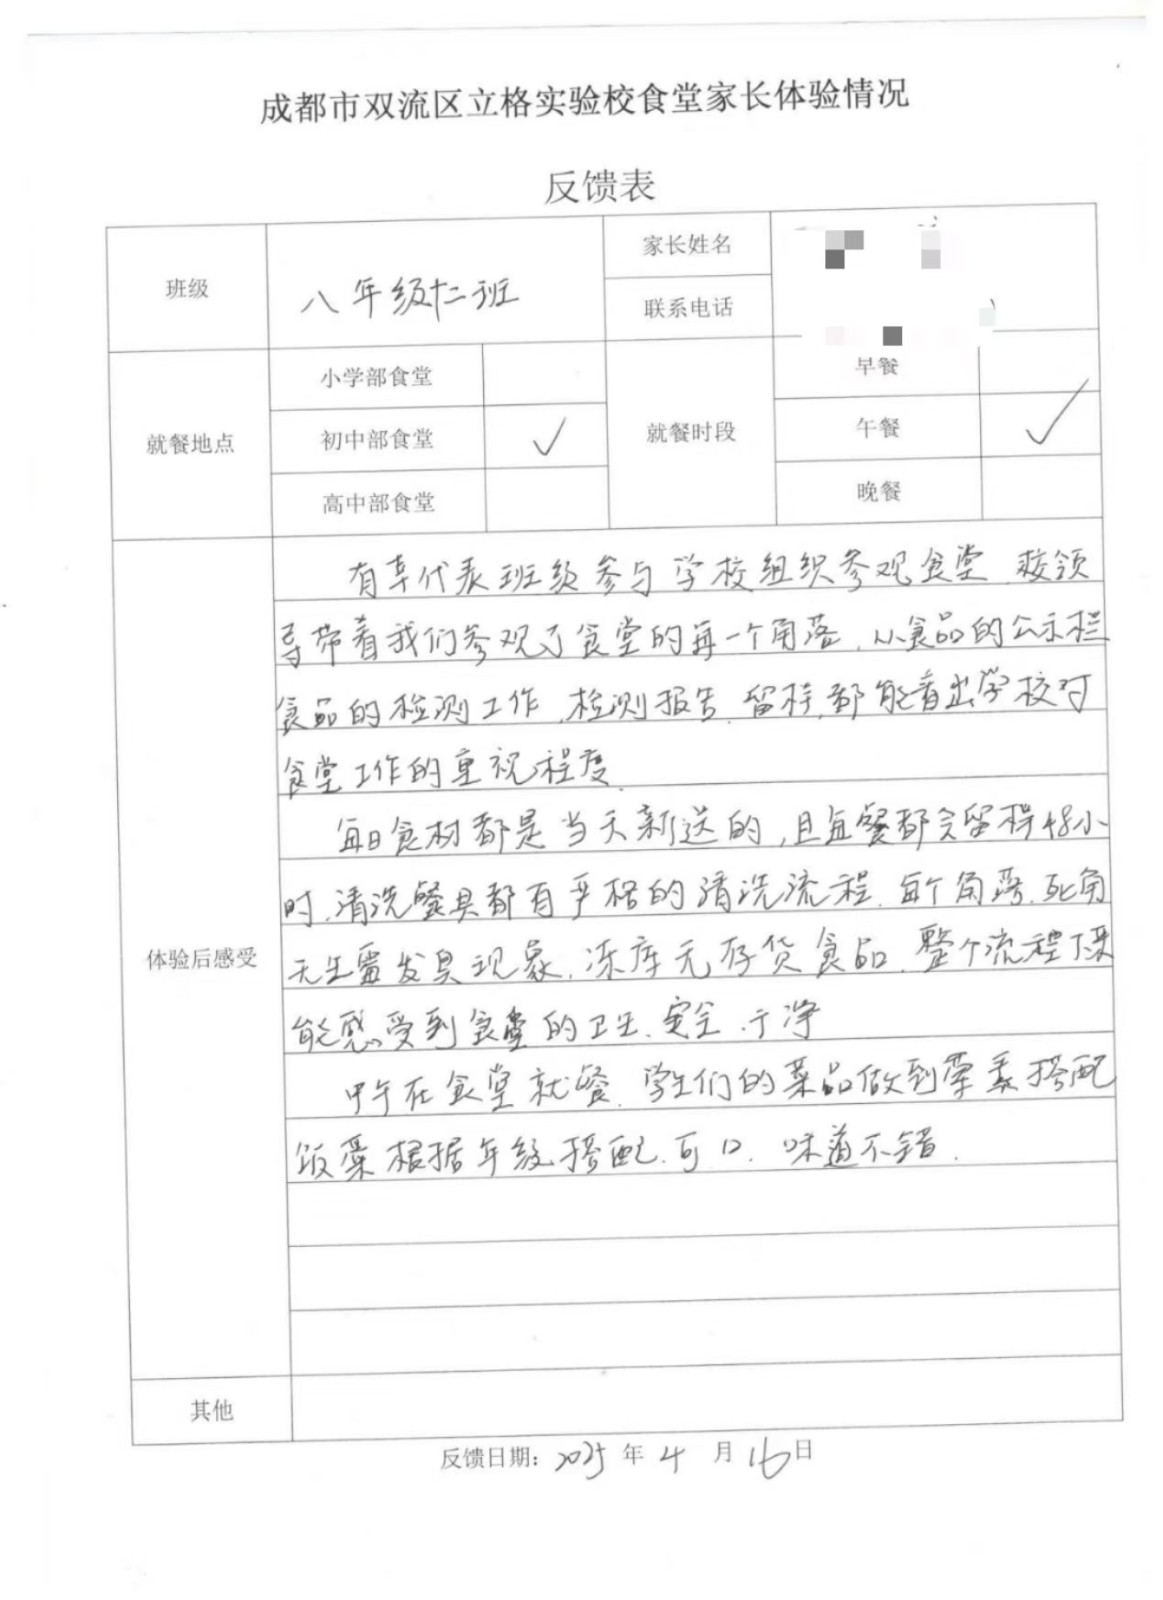 成都市双流区立格实验校食堂家长体验情况
反馈表
班级 八年级十二班 家长姓名
联系电话
就餐地点 小学部食堂 就餐时段 早餐
初中部食堂 ✓ 午餐 ✓
高中部食堂 晚餐
体验后感受
有幸代表班级参与学校组织参观食堂,校领
导带着我们参观了食堂的每一个角落,从食品的公示栏
食品的检测工作,检测报告,留样,都能看出学校对
食堂工作的重视程度.
每日食材都是当天新送的,且每餐都会留样48小
时,清洗餐具都有严格的清洗流程.每个角落,死角
无生霉发臭现象,冻库无存货食品,整个流程下来
能感受到食堂的卫生、安全、干净
中午在食堂就餐,学生们的菜品做到荤素搭配
饭菜根据年级搭配,可口,味道不错.
其他
反馈日期: 2025 年 4 月 16 日